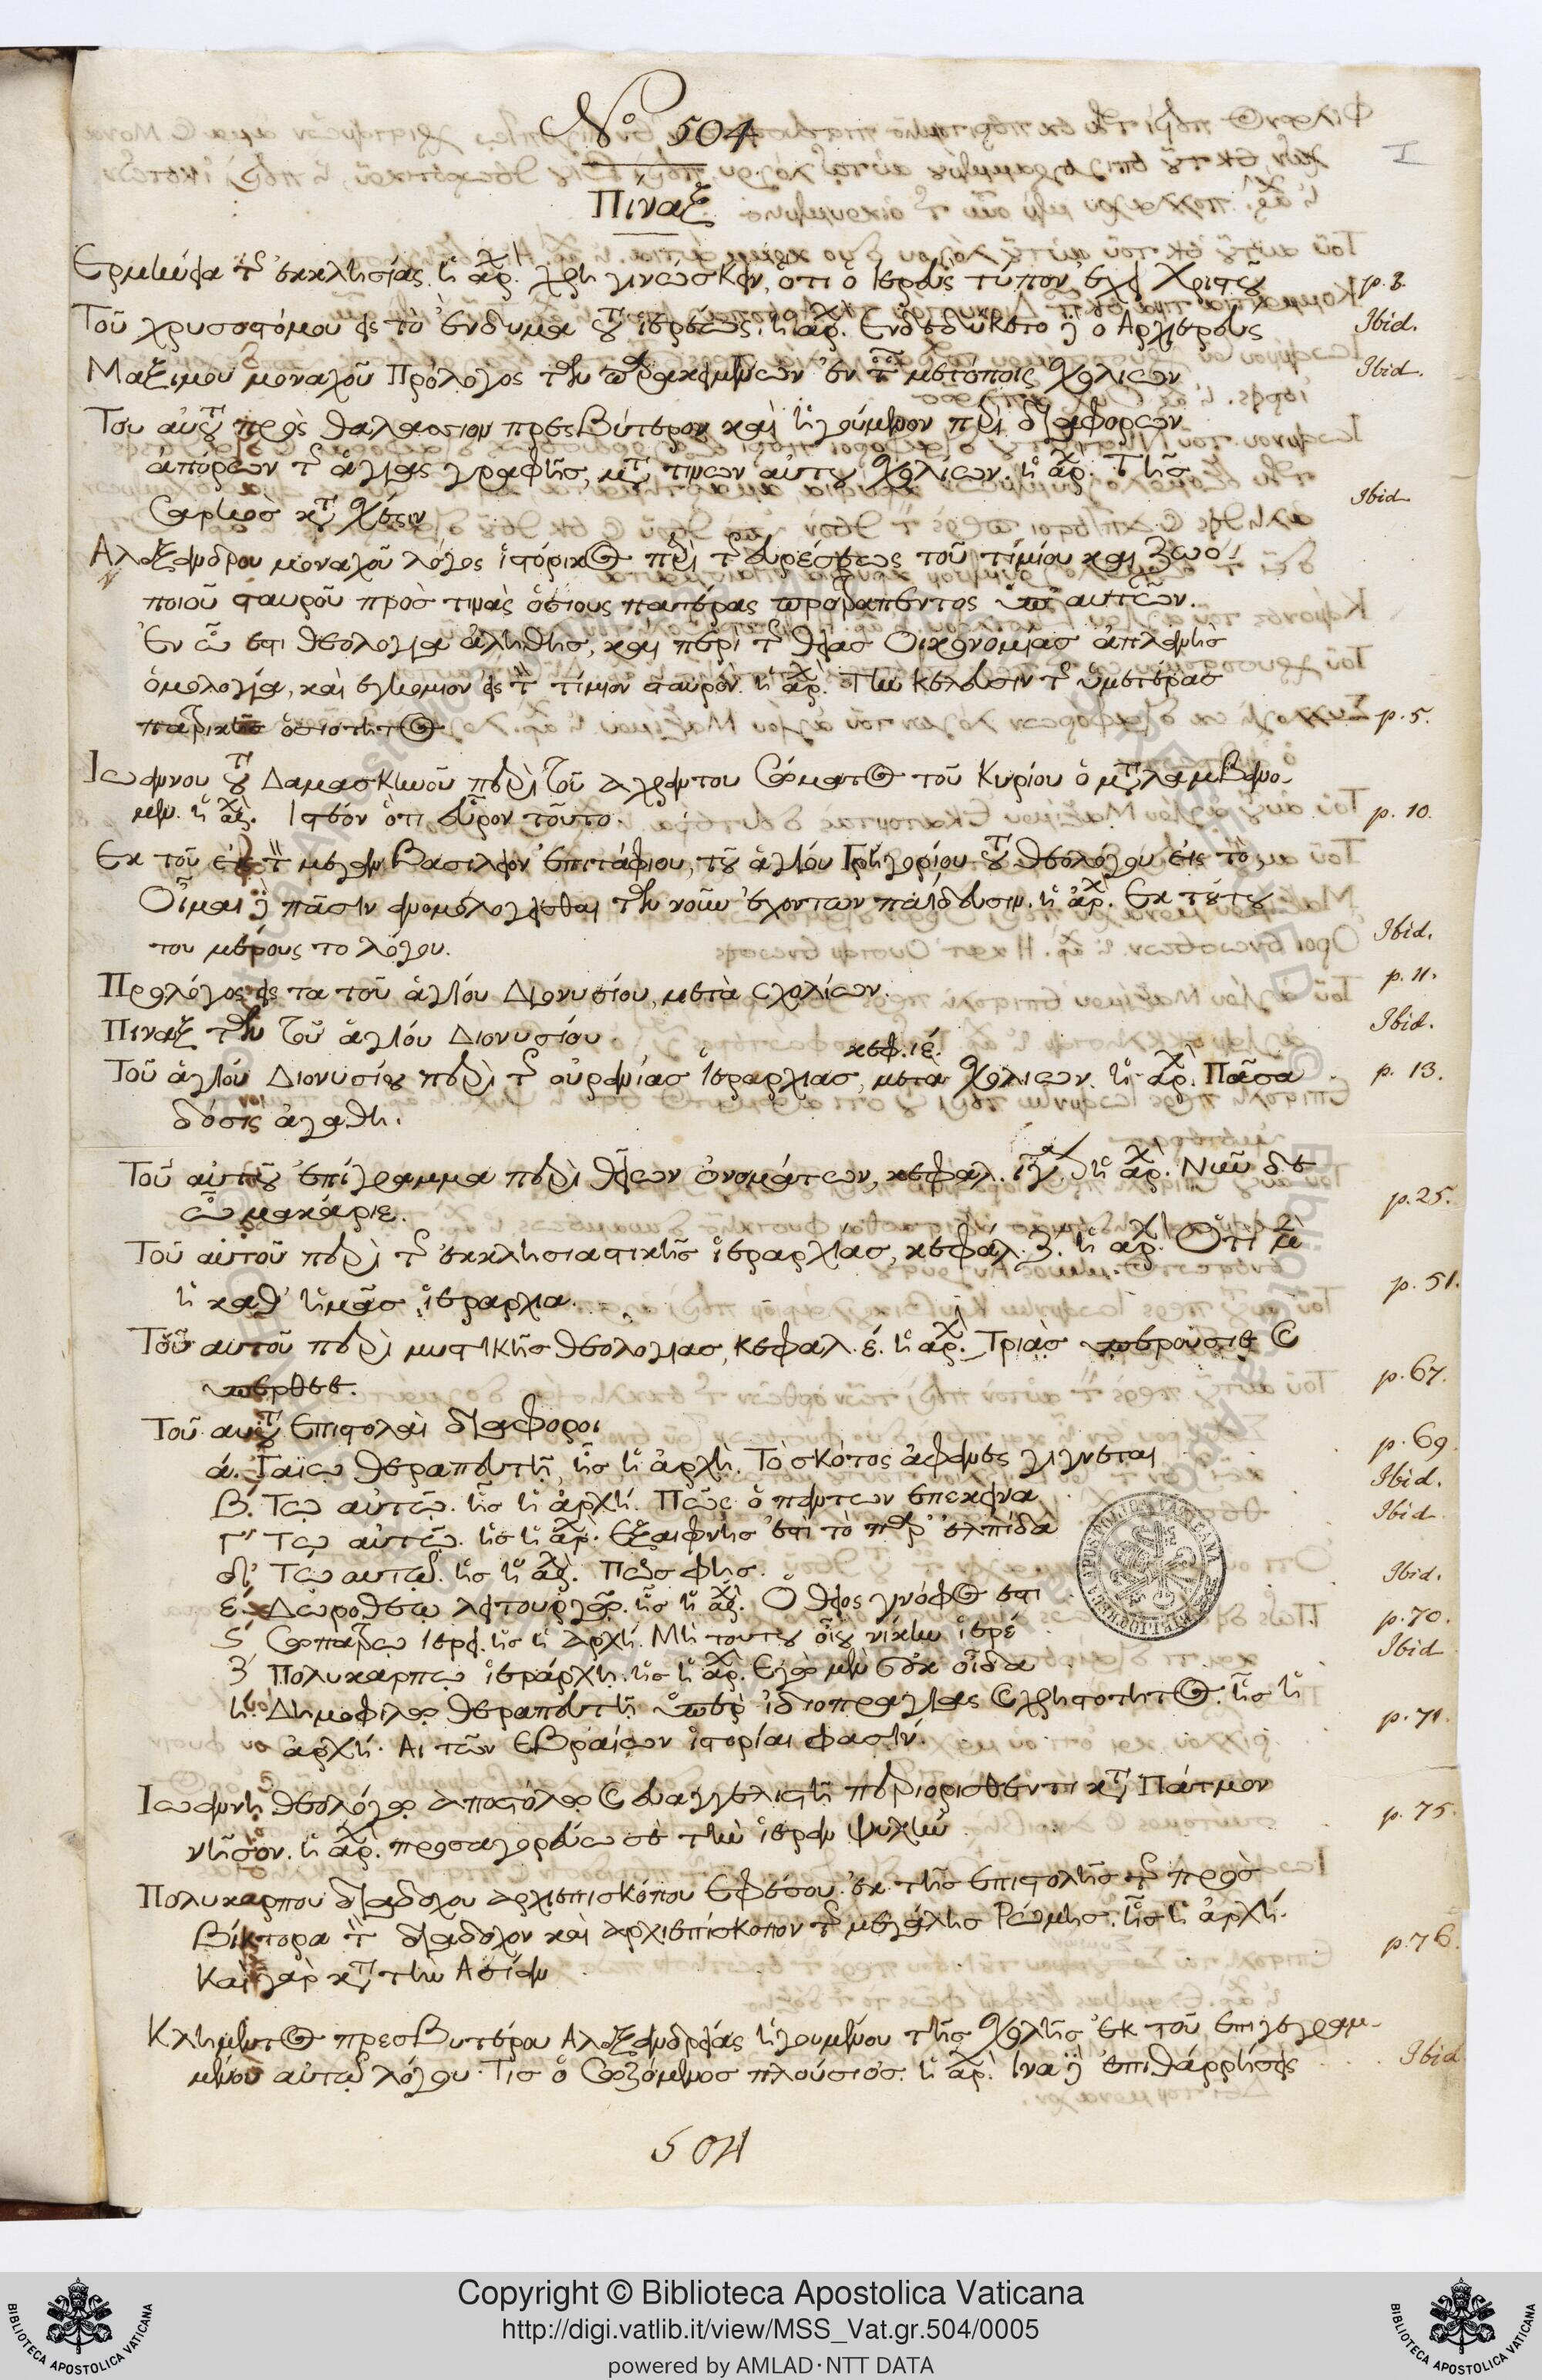 Nº 504
I
Πίναξ
Ερμηνεία τῆς ἐκκλησίας. ἡ ἀρχ. χρὴ γινώσκειν, ότι ο Ιερεὺς τύπον ἐχει Χριστοῦ p. 3.
Τοῦ χρυσοστόμου εἰς τὸ ἔνδυμα τοῦ ἱερέως. ἡ ἀρχ. Ενδεδύκετο ὁ Αρχιερεὺς Ibid.
Μαξίμου μοναχοῦ Πρόλογος τῶν ἐν τοῖς μετόποις σχολίων Ibid.
Του αὐτοῦ πρὸς θαλασσιον πρεσβύτερον καὶ ἡγούμενον περὶ διαφορων
ἀπόρων τῆς ἁγίας γραφῆς, μετὰ τινων αὐτου σχολίων. ἡ ἀρχ. Τῆς
σαρκὸσ κατὰ σχέσιν Ibid
Αλεξάνδρου μοναχοῦ λόγος ἱστόρικος περὶ τῆς εὑρέσεως τοῦ τίμίου και ζωο-
ποιοῦ σταυροῦ πρὸσ τινὰς ὁσιους πατέρας προτραπέντος ὑπ' αυτῶν.
Ἐν ᾧ εστι θεολογια ἀληθὴς, και περὶ τῆς θείας οἰκονομίασ ἀπλανὴς
ὁμολογία, καὶ εγκωμιον εἰς τὸν τίμιον σταυρόν. ἡ ἀρχ. Τὴν κέλευσιν τῆς ὑμετέρασ
πατρικῆς ὁσιότητος p. 5.
Ιωάννου τοῦ Δαμασκηνοῦ περὶ τοῦ ἀχράντου Σώματος τοῦ Κυρίου ὁ μεταλαμβάνο-
μεν. ἡ ἀρχ. Ιστέον ὅτι εὗρον τοῦτο. p. 10.
Εκ τοῦ εἰς τὸν μέγαν Βασίλειον ἐπιτάφιου, τοῦ ἁγίου Γρηγορίου τοῦ θεολόγου εἰς τὸ,
Οἶμαι δὲ πᾶσιν ἀνομολογεῖσθαι τῶν νοῦν ἐχοντων παίδευσιν. ἡ ἀρχ. Εκ τούτου
του μέρους το λόγου. Ibid.
Πρόλόγος εἰς τα τοῦ ἁγίου Διονυσίου, μετὰ σχολίων. p. 11.
Πιναξ τῶν τοῦ ἁγίου Διονυσίου Ibid.
κεφ. ιέ.
Τοῦ ἁγίου Διονυσίου περὶ τῆς οὐρανίας ἱεραρχίας, μετα σχολιων. ἡ ἀρχ. Πᾶσα p. 13.
δόσις ἀγαθη.
Τοῦ αὐτοῦ ἐπίγραμμα περὶ θείων ὀνομάτων, κεφαλ. ιγ. ἡ ἀρχ. Νῦν δε
ὦ μακάριε. p. 25.
Τοῦ αὐτοῦ περὶ τῆς ἐκκλησιαστικῆς ἱεραρχίας, κεφαλ. ζ. ἡ ἀρχ. Ὅτι μὲν
ἡ καθ' ἡμᾶσ ἱεραρχια. p. 51.
Τοῦ αυτοῦ περὶ μυστικῆς θεολογιασ, κεφαλ. έ. ἡ ἀρχ. Τριὰσ ὑπερούσιε καὶ
ὑπέρθεε. p. 67.
Τοῦ αυτοῦ Επιστολαὶ διάφοροι
ά. Γαϊω θεραπευτῇ, ἧς ἡ ἀρχὴ. Τὸ σκότος ἀφανὲς γίγνεται p. 69.
Β. Τῳ αὐτῷ. ἧς ἡ ἀρχή. Πῶς ὁ πάντων ἐπέκεινα Ibid.
Γ' Τῳ αὐτῷ. ἧς ἡ ἀρχ. Εξαιφνης ἐστὶ τὸ παρ' ἐλπίδα Ibid
δ' Τῳ αυτῷ. ἧς ἡ ἀρχ. Πῶς φῃς. Ibid.
έ. Δωροθέῳ λειτουργῷ. ἧς ἡ ἀρχ. Ὁ θεῖος γνόφος εστι p. 70.
ς' Σωπατρῳ Ιερεῖ. ἧς ἡ ἀρχή. Μὴ τουτου οἴου νίκην ἱερέ Ibid
ζ' Πολυκαρπῳ ἱεράρχῃ. ἧς ἡ ἀρχ. Εγὼ μὲν οὐκ οἶδα
ή. Δημοφίλῳ θεραπευτῇ ὑπὲρ ἰδιοπραγίας καὶ χρηστοτητος. ἧς ἡ
ἀρχή. Αι τῶν Εβραίων ἱστορίαι φασίν. p. 71.
Ιωάννῃ θεολόγῳ ἀποστόλῳ καὶ εὐαγγελιστῇ περιορισθέντι κατὰ Πάτμον
νῆσον. ἡ ἀρχ. προσαγορεύω σὲ τὴν ἱερὰν ψυχὴν p. 75.
Πολυκαρπου διαδόχου ἀρχιεπισκόπου Εφέσου ἐκ τῆς ἐπιστολῆς τῆς πρὸς
Βίκτορα τὸν διάδοχον καὶ ἀρχιεπίσκοπον τῆς μεγάλης Ρώμης. ἧς ἡ ἀρχή.
Καὶ γὰρ κατὰ τὴν Ασίαν p. 76.
Κλήμεντος πρεσβυτέρου Αλεξανδρείας ἡγουμένου τῆς σχολῆς ἐκ τοῦ ἐπιγεγραμ-
μένου αὐτῷ λόγου. Τις ὁ Σωζόμενος πλούσιος. ἡ ἀρχ. Ινα δὲ ἐπιθαρρήσῃς Ibid
504
Copyright © Biblioteca Apostolica Vaticana
http://digi.vatlib.it/view/MSS_Vat.gr.504/0005
powered by AMLAD·NTT DATA
BIBLIOTECA APOSTOLICA VATICANA
BIBLIOTECA APOSTOLICA VATICANA